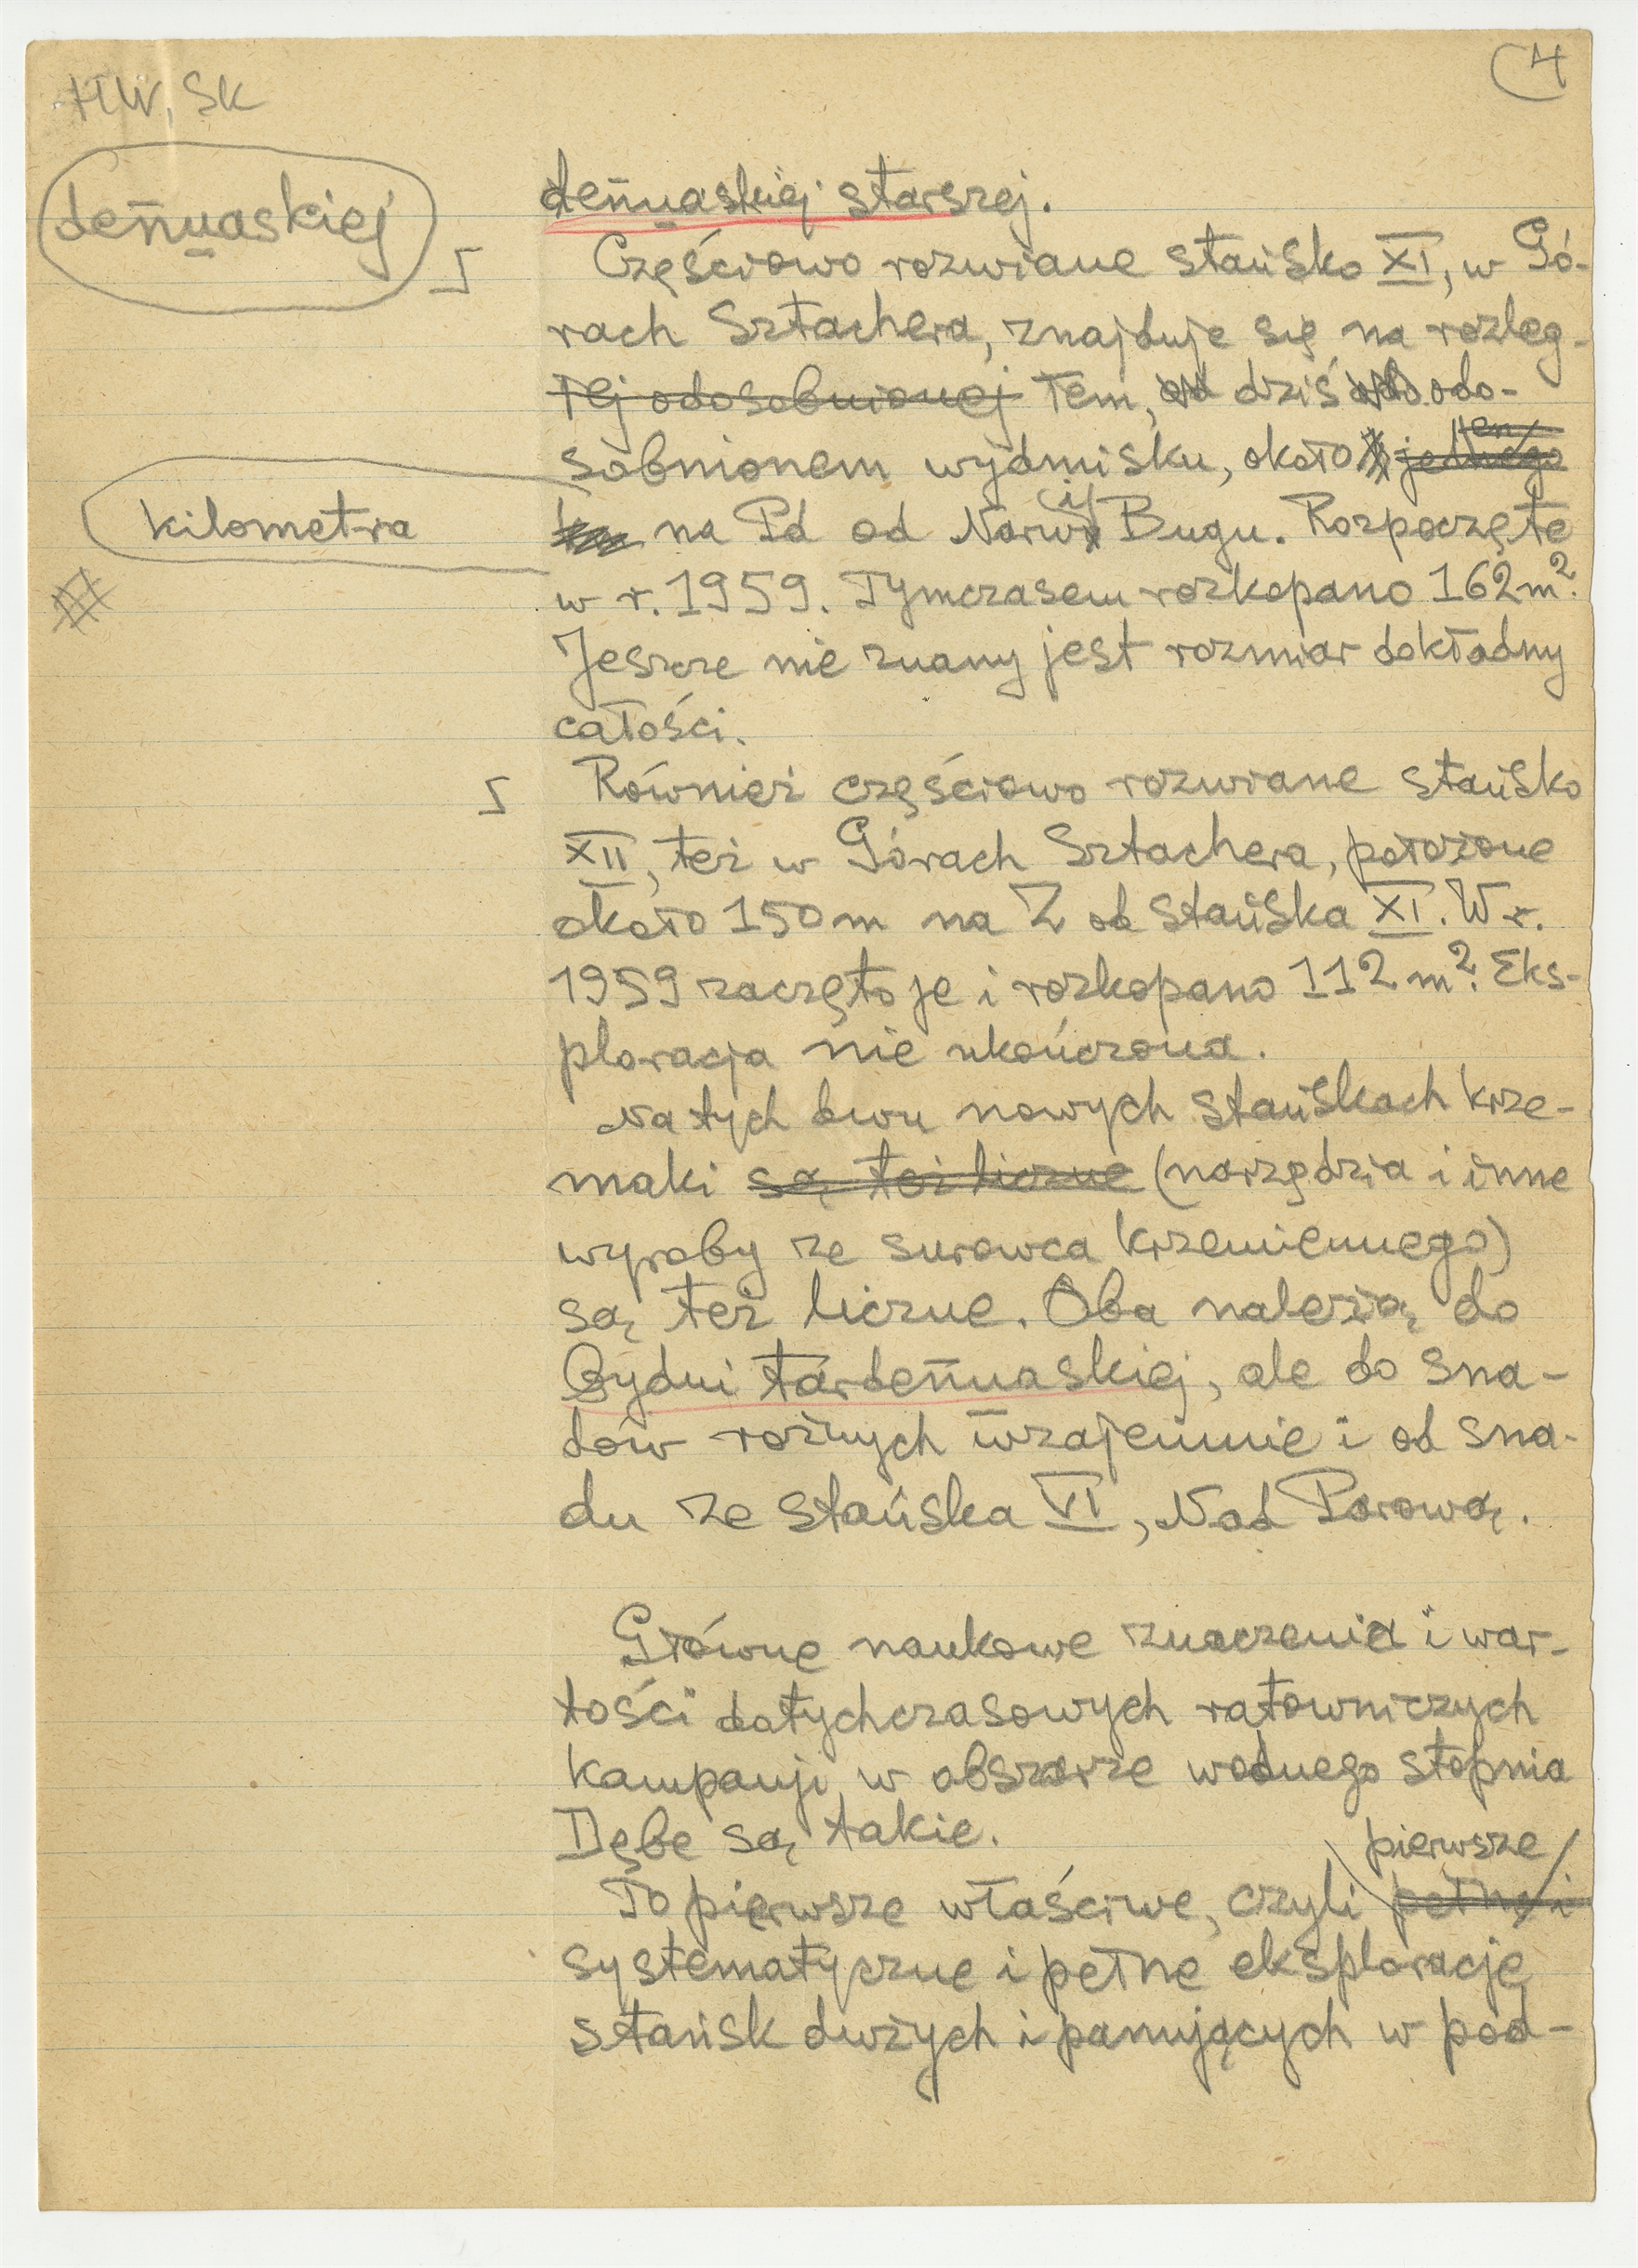 HW, SK
4
deñuaskiej
deñuaskiej starszej.
Częściowo rozwiane stańsko XI, w Gó-
rach Sztachera, znajduje się na rozleg-
łej odosobnionej łem, dziś odo-
sobnionem wydmisku, około jednego
kilometra
na Pd od Narwi Bugu. Rozpoczęte
w r. 1959. Tymczasem rozkopano 162 m².
Jeszcze nie znany jest rozmiar dokładny
całości.
Również częściowo rozwiane stańsko
XII, też w Górach Sztachera, położone
około 150 m na Z od stańska XI. W r.
1959 zaczęto je i rozkopano 112 m². Eks-
ploracja nie ukończona.
Na tych dwu nowych stańskach krze-
maki są też liczne (narzędzia i inne
wyroby ze surowca krzemiennego)
są też liczne. Oba należą do
Cydni tardeñuaskiej, ale do sna-
dów różnych wzajemnie i od sna-
du ze stańska VI, Nad Parową.
Główne naukowe znaczenia i war-
tości dotychczasowych ratowniczych
kampanji w obszarze wodnego stopnia
Dębe są takie.
pierwsze
To pierwsze właściwe, czyli pełne i
systematyczne i pełne eksploracje
stańsk dużych i panujących w pod-